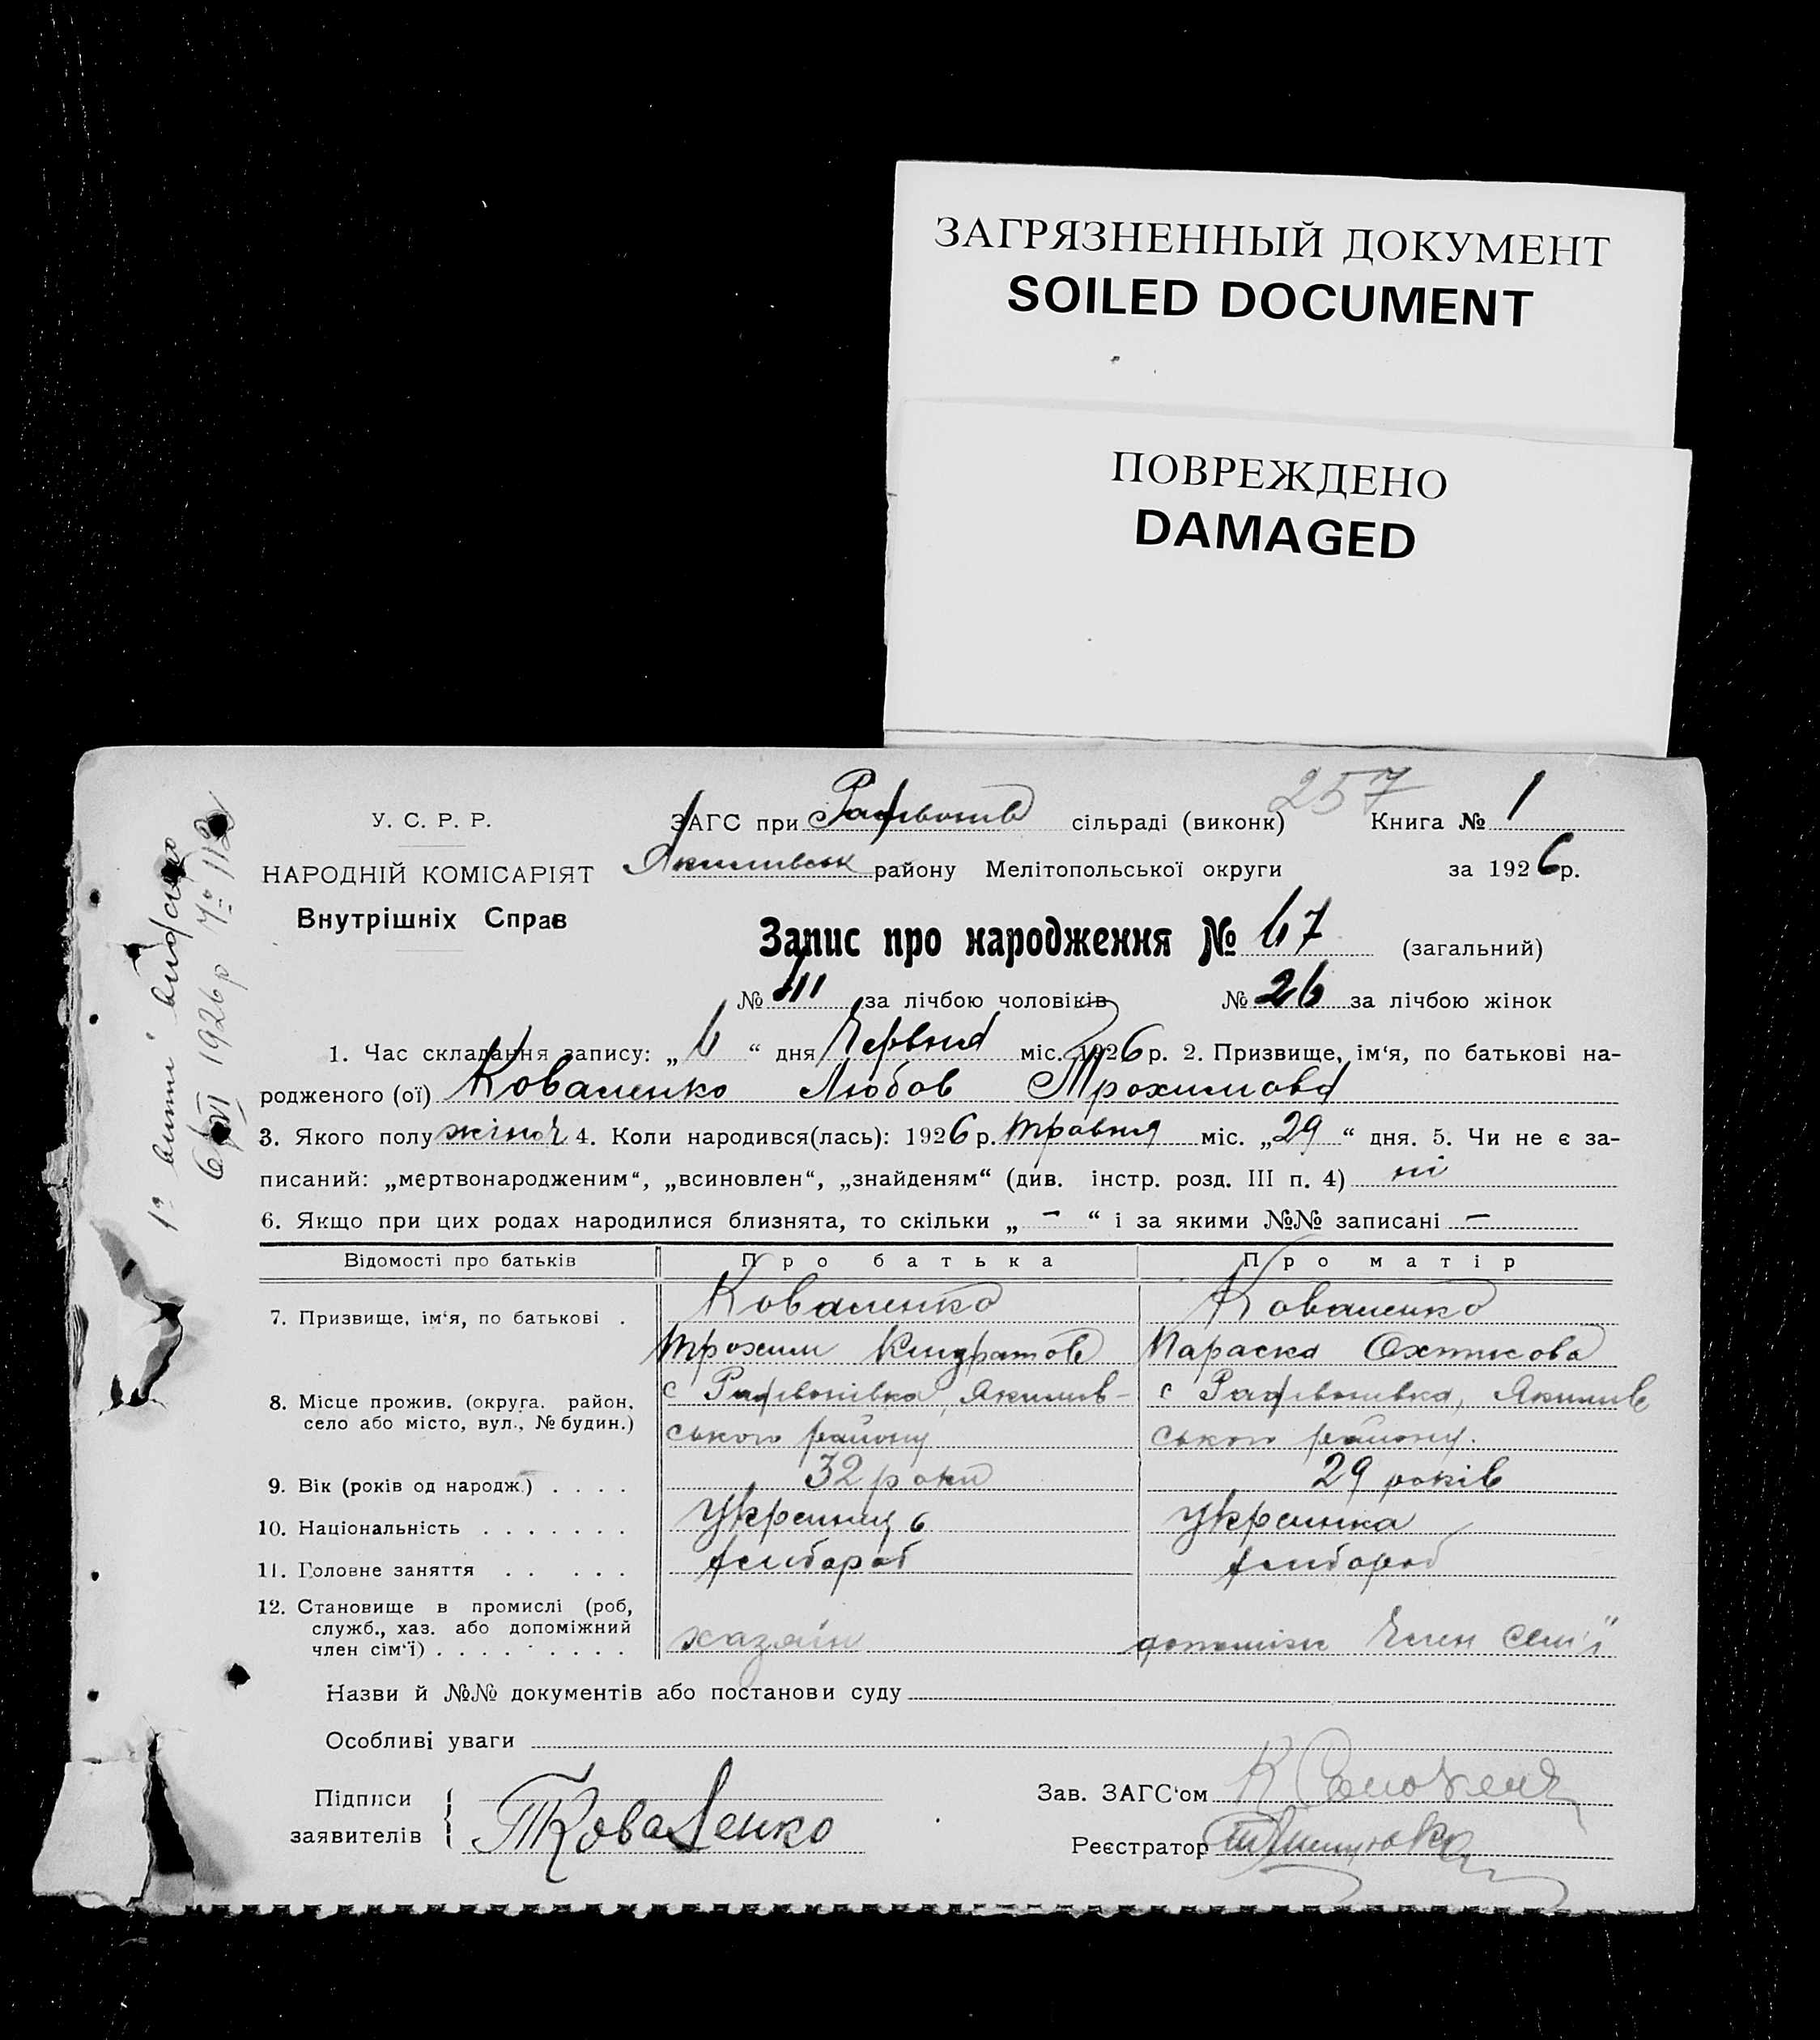 ЗАГРЯЗНЕННЫЙ ДОКУМЕНТ
SOILED DOCUMENT
ПОВРЕЖДЕНО
DAMAGED
257
У. С. Р. Р.
НАРОДНІЙ КОМІСАРІЯТ
Внутрішніх Справ
ЗАГС при сільраді (виконк) Книга № 1
району Мелітопольської округи за 1926 р.
Запис про народження № 67 (загальний)
№ за лічбою чоловіків № 26 за лічбою жінок
1. Час складання запису: „6“ дня Червня міс. 1926 р. 2. Призвище, ім‘я, по батькові на-
родженого (ої) Коваленко Любов Трохимова
3. Якого полу жіноч 4. Коли народився(лась): 1926 р. травня міс. „29“ дня. 5. Чи не є за-
писаний: „мертвонародженим“, „всиновлен“, „знайденям“ (див. інстр. розд. III п. 4) ні
6. Якщо при цих родах народилися близнята, то скільки „ - “ і за якими №№ записані -
Відомості про батьків Про батька Про матір
7. Призвище, ім‘я, по батькові . Коваленко Коваленко
Трохим Кіндратов Параска Охтисова
8. Місце прожив. (округа. район, село або місто, вул., № будин.) с Якимів- с Якимів
ського району ського району.
9. Вік (років од народж.) . . . . 32 роки 29 років
10. Національність . . . . . . . Українець Українка
11. Головне заняття . . . . . хлібороб хлібороб
12. Становище в промислі (роб, служб., хаз. або допоміжний член сім‘ї) . . . . . . . . . хазяїн допоміжн член сем'ї
Назви й №№ документів або постанови суду
Особливі уваги
Підписи заявителів ТКоваленко
Зав. ЗАГС‘ом
Реєстратор
1926 р № 112